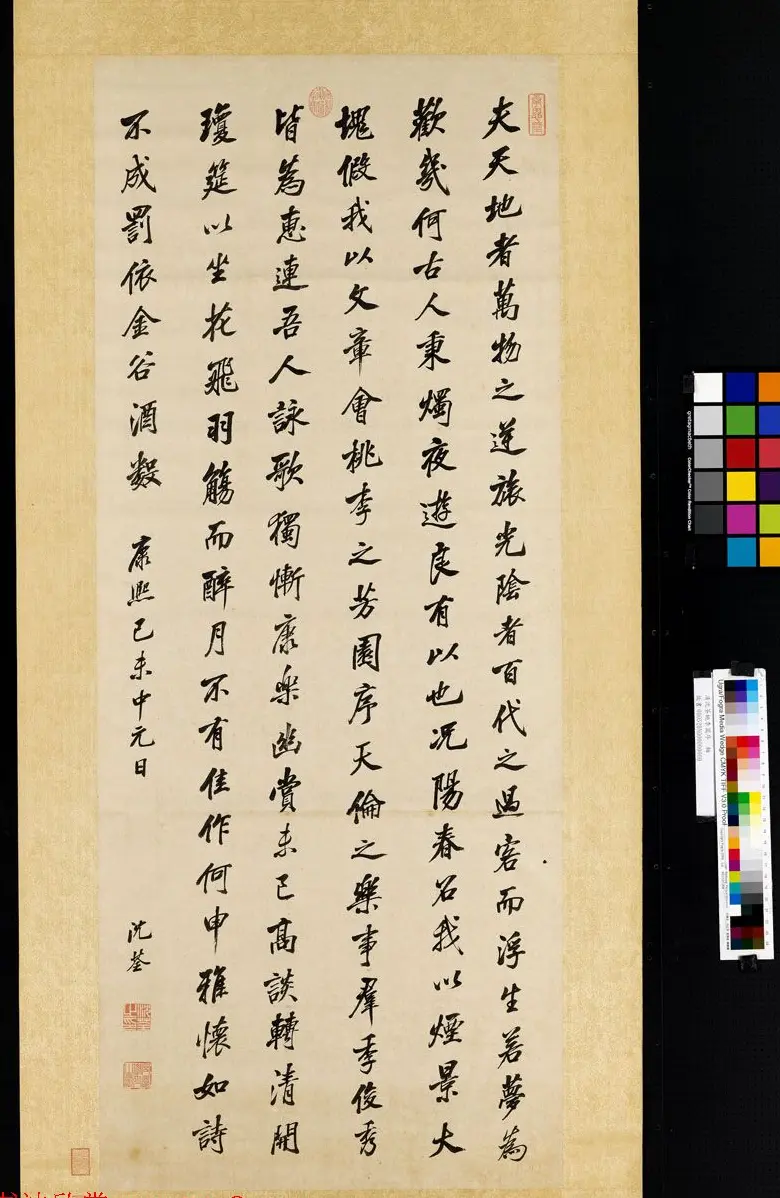 夫天地者萬物之逆旅光陰者百代之過客而浮生若夢為
歡幾何古人秉燭夜遊良有以也况陽春召我以煙景大
塊假我以文章會桃李之芳園序天倫之樂事羣季俊秀
皆為惠連吾人詠歌獨慚康樂幽賞未已高談轉清開
瓊筵以坐花飛羽觴而醉月不有佳作何申雅懷如詩
不成罰依金谷酒數 康熙己未中元日 沈荃
gretagmacbeth
ColorChecker Color Rendition Chart
Ugra/Fogra Media Wedge CMYK TIFF V3.0 Proof